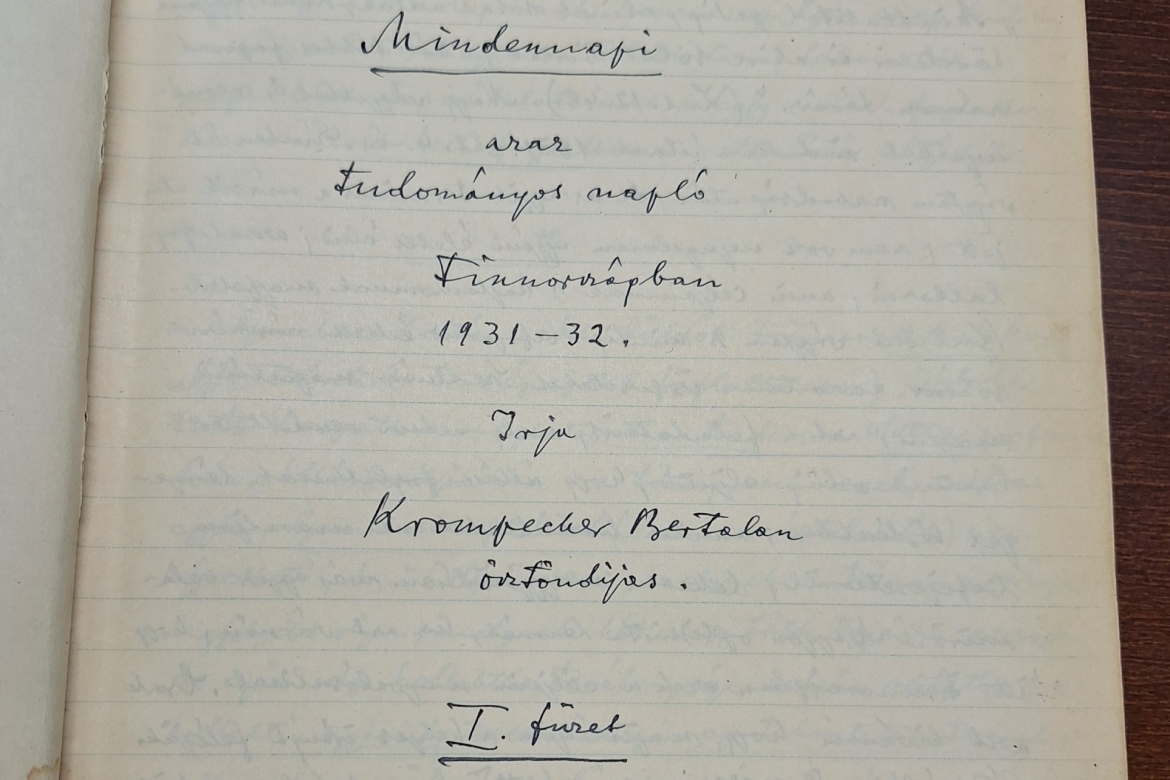 Mindennapi
azaz
tudományos napló
Finnországban
1931–32.
Irja
Krompecher Bertalan
ösztöndijas.
I. füzet